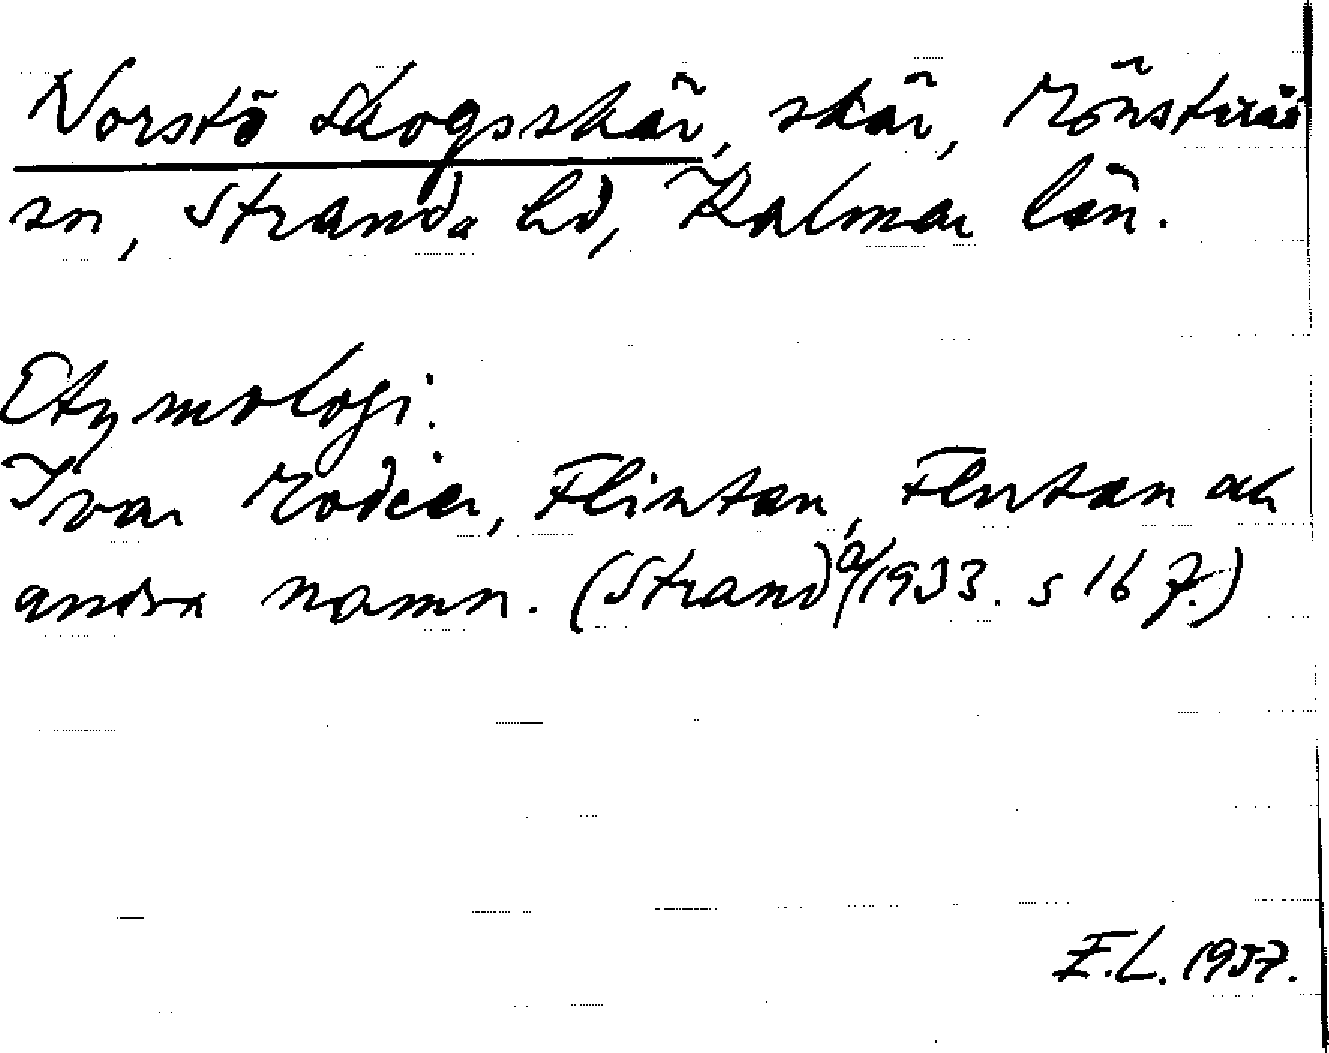 Vorstö Skogsskär, skär, Mönsterås
sn, Stranda hd, Kalmar län.
Etymologi.
Ivar Modéer, Flintan, Flutan och
andra namn. (Stranda/1933. s 16 f.)
E.L. 1957.